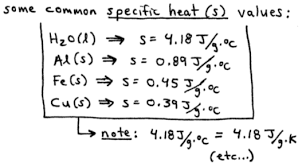 some common specific heat (s) values:
H₂O(l) ⇒ s = 4.18 J/g·°C
Al(s) ⇒ s = 0.89 J/g·°C
Fe(s) ⇒ s = 0.45 J/g·°C
Cu(s) ⇒ s = 0.39 J/g·°C
→ note: 4.18 J/g·°C = 4.18 J/g·K
(etc...)